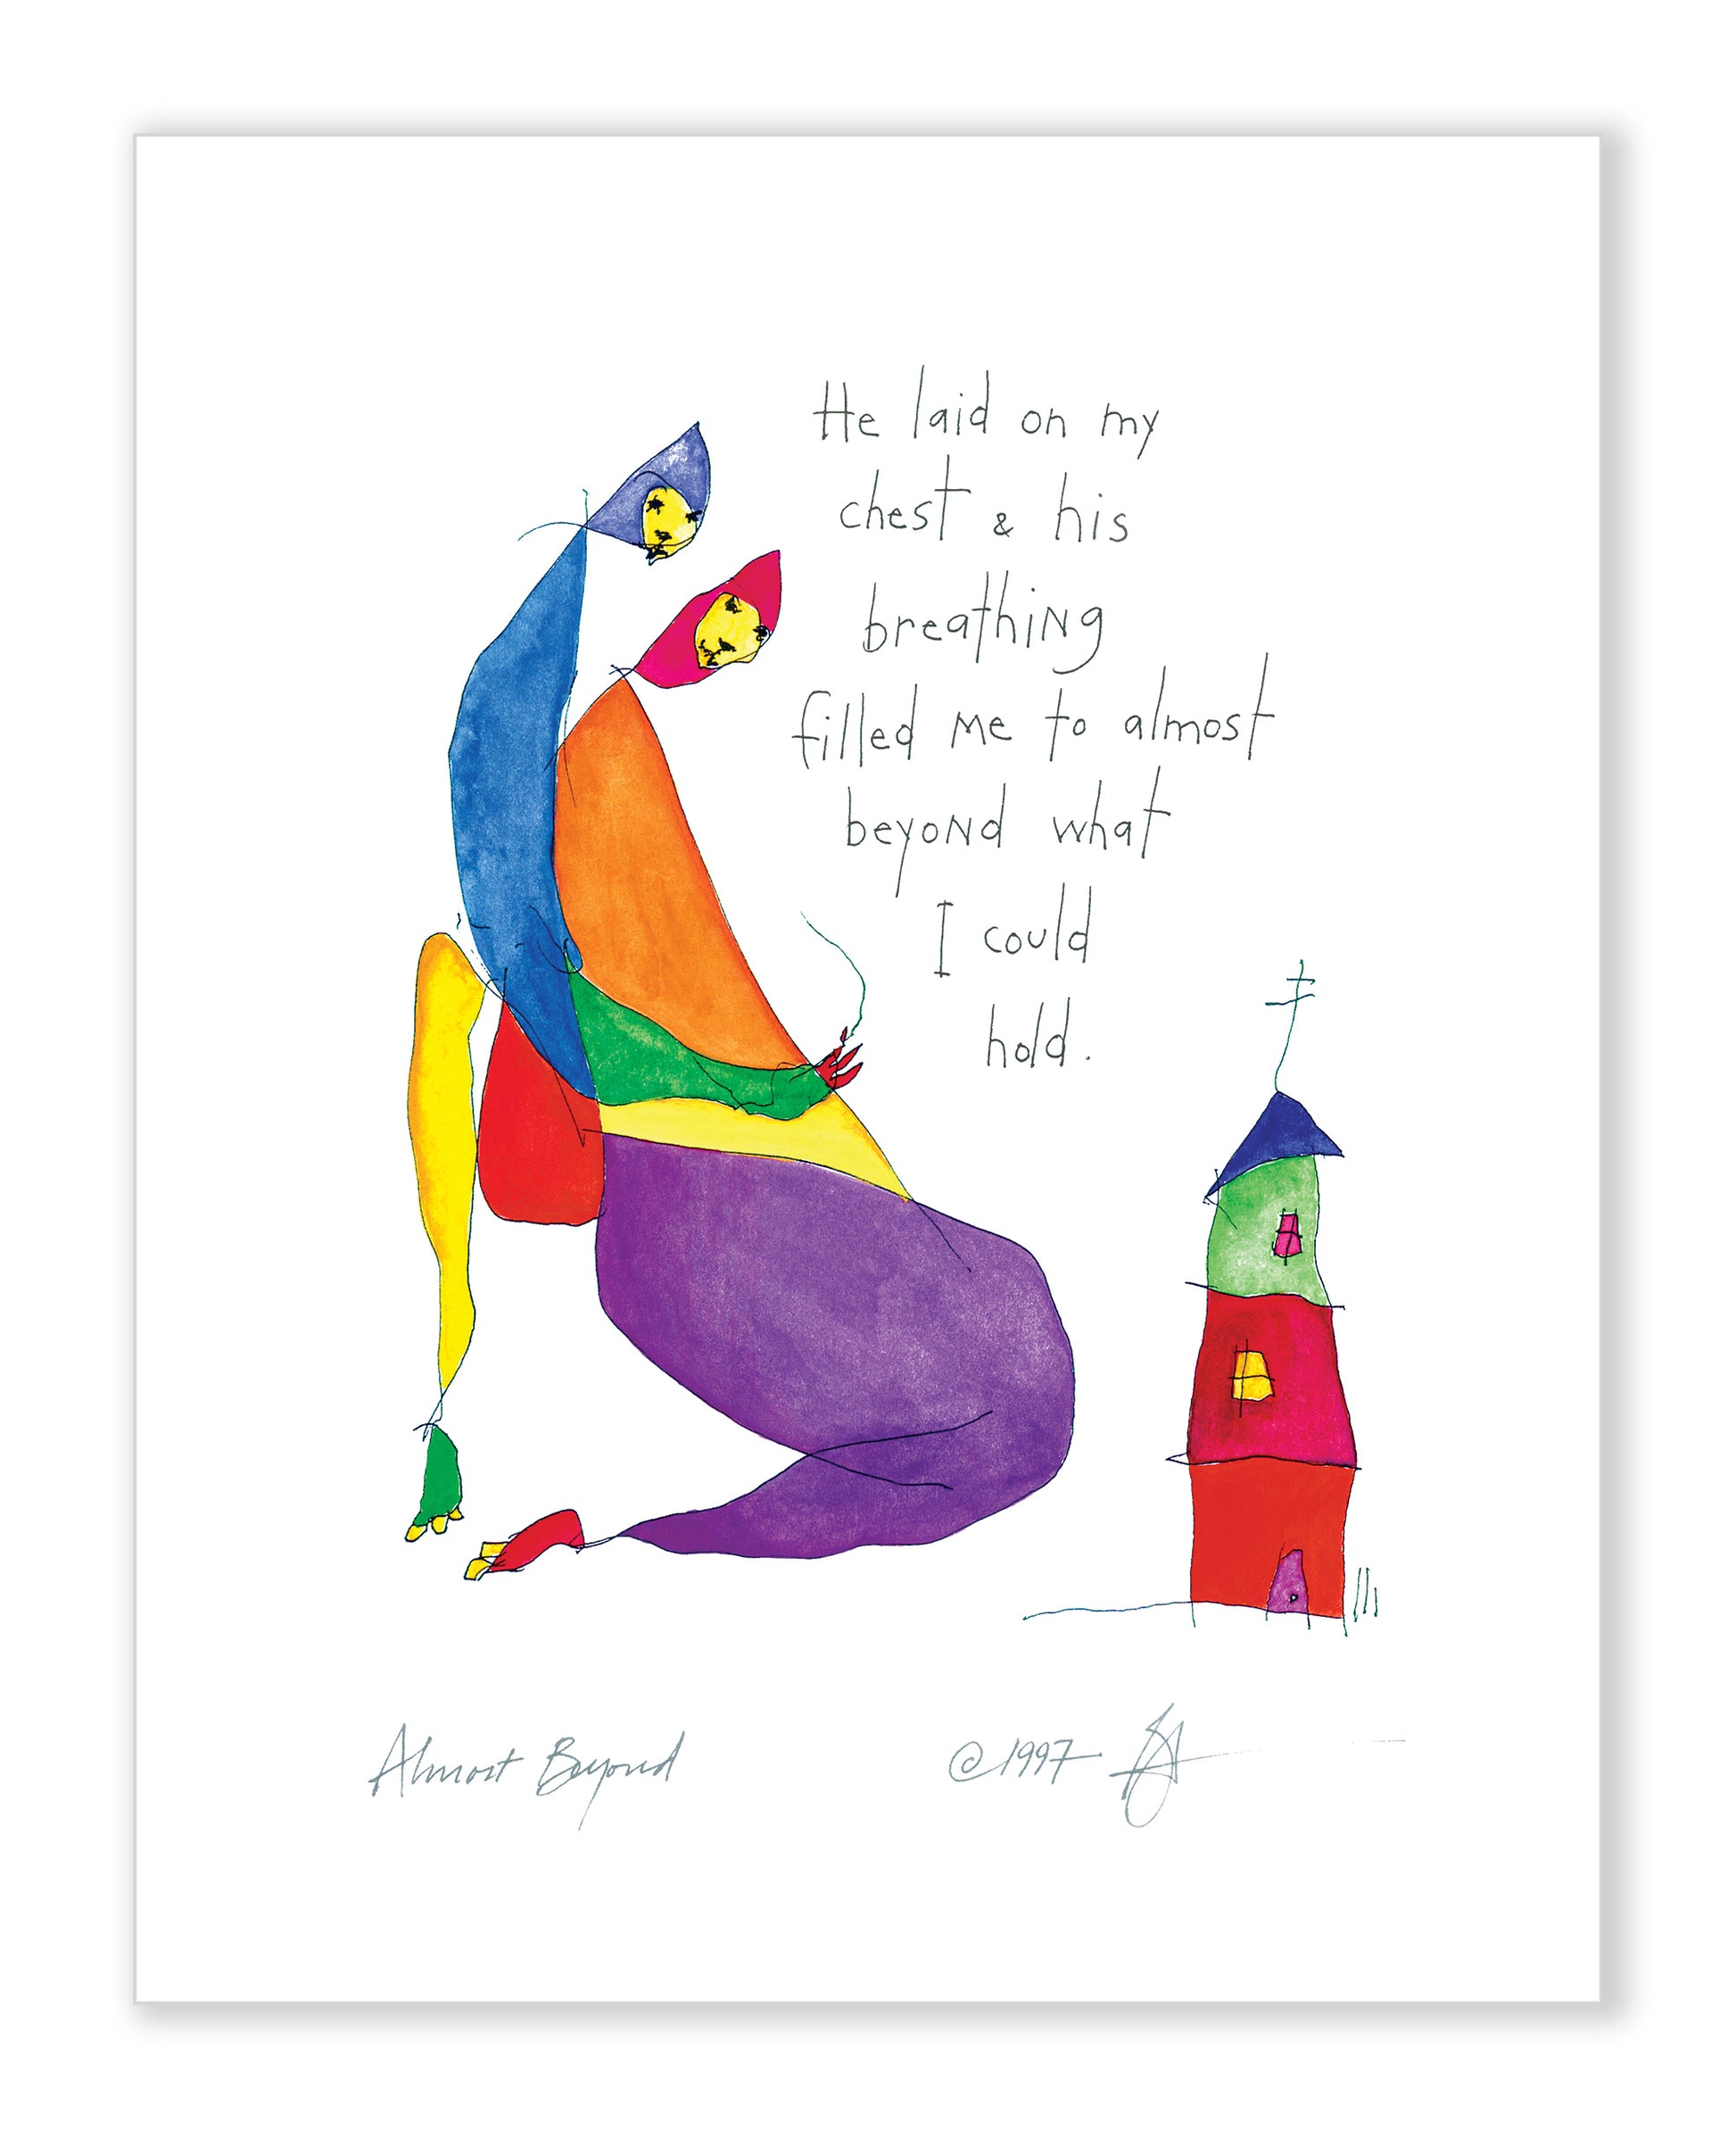 He laid on my
chest & his
breathing
filled me to almost
beyond what
I could
hold.
Almost Beyond
©1997